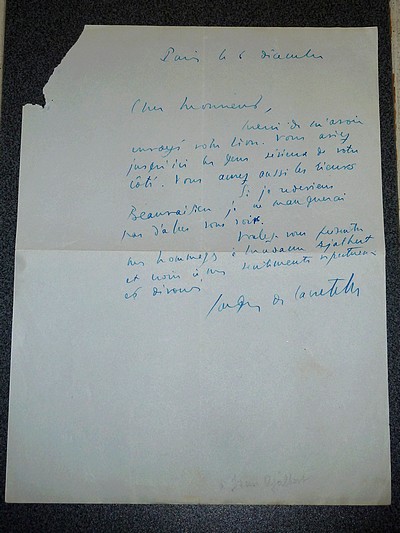 Paris le 6 décembre
Cher Monsieur,
Merci de m'avoir
envoyé votre livre. Vous aviez
jusqu'ici les gens sérieux de votre
côté. Vous aurez aussi les
Si je redeviens
Beauvaisien je ne manquerai
pas d'aller vous voir.
Voulez-vous présenter
mes hommages à Madame Ajalbert
et croire à mes sentiments respectueux
et dévoués
Jacques de Lacretelle
à Jean Ajalbert